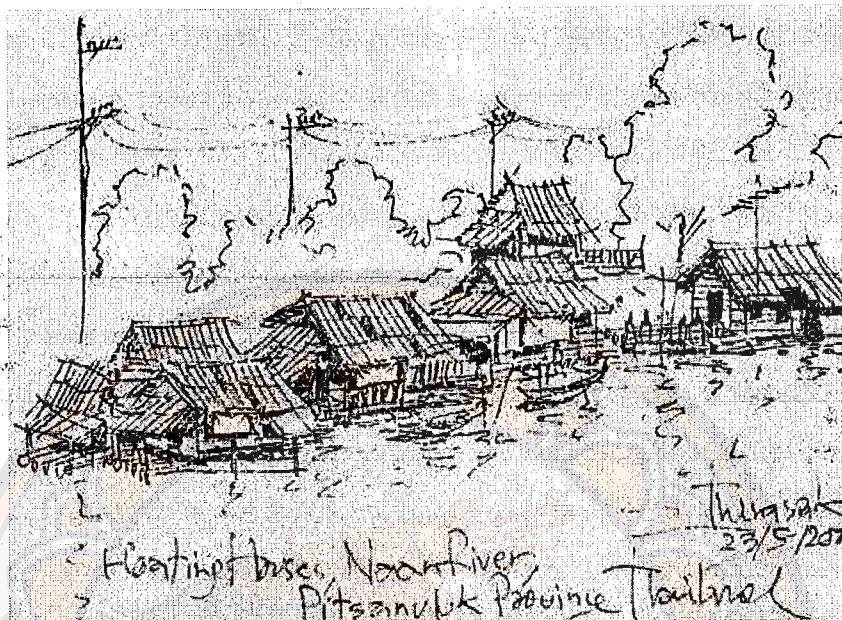 Thirasak
23/5/20
Floating Houses, Naan River,
Pitsanuluk Province Thailand